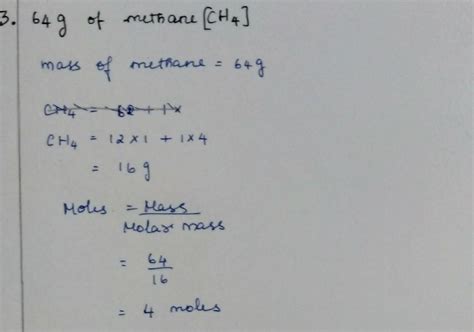 3. 64g of methane [CH4]
mass of methane = 64g
CH4 = 62 + 1x
CH4 = 12x1 + 1x4
= 16g
Moles = Mass
Molar mass
= 64
16
= 4 moles